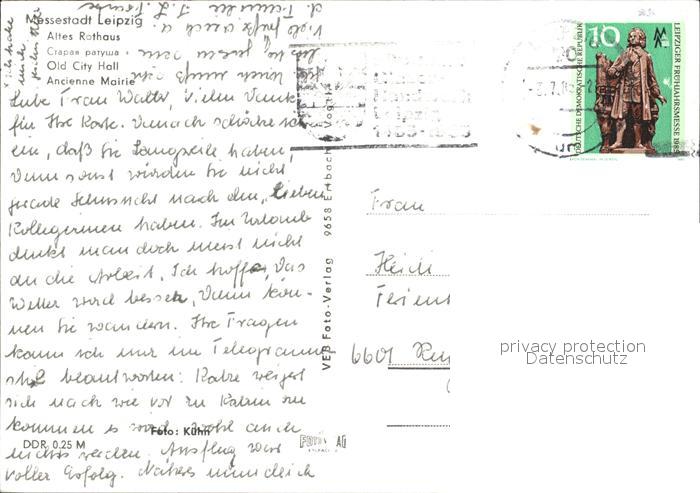 Messestadt Leipzig
Altes Rathaus
Старая ратуша
Old City Hall
Ancienne Mairie
Liebe Frau Walter, vielen Dank
für Ihre Karte. Danach schätze ich
ein, daß Sie Langweile haben,
denn sonst würden Sie nicht
gerade Sehnsucht nach den "lieben
Kolleginnen haben. Im Urlaub
denkt man doch meist nicht
an die Arbeit. Ich hoffe, das
Wetter wird besser, dann kön-
nen Sie wandern. Ihre Fragen
kann ich nur im Telegramm-
stil beantworten: Katze weigert
sich nach wie vor zu
kommen es wird wohl auch
nichts werden. Ausflug war
voller Erfolg. Näheres mündlich
Foto: Kühn
DDR 0.25 M
VEB Foto-Verlag 9658 Erlbach Vogtl.
FOTO AG
10
DEUTSCHE DEMOKRATISCHE REPUBLIK
LEIPZIGER FRÜHJAHRSMESSE 1985
Frau
Heidi
Ferien
6601
privacy protection
Datenschutz